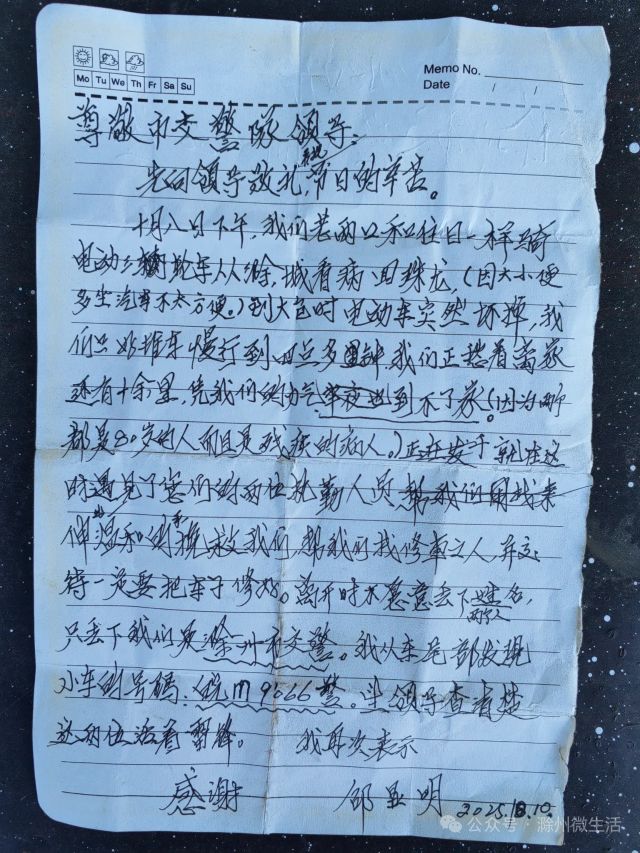 Mo Tu We Th Fr Sa Su
Memo No.
Date / /
尊敬市交警队领导:
先向领导敬礼,祝节日的辛苦。
十月八日下午,我们老两口和往日一样骑
电动三轮车从滁城看病回珠龙,(因大小便
多坐汽车不太方便。)到大包时电动车突然坏掉,我
们只好推车慢行到四点多钟,我们正愁着离家
还有十余里,凭我们的力气半夜也到不了家。(因为两个
都是80岁的人而且是残疾的病人。)正在发于就在这
时遇见了您们的两位执勤人员
伸温和的手挽救我们,帮我们找修车之人,并交
待一定要把车子修好。离开时不愿意丢下姓名,
两个人
只丢下我们是滁州市交警。我从车尾部发现
小车的号码:(皖M9666警。望领导查看楚
这两位活着雷锋。 我再次表示
感谢 邵 明 2025.10.10
公众号·滁州微生活